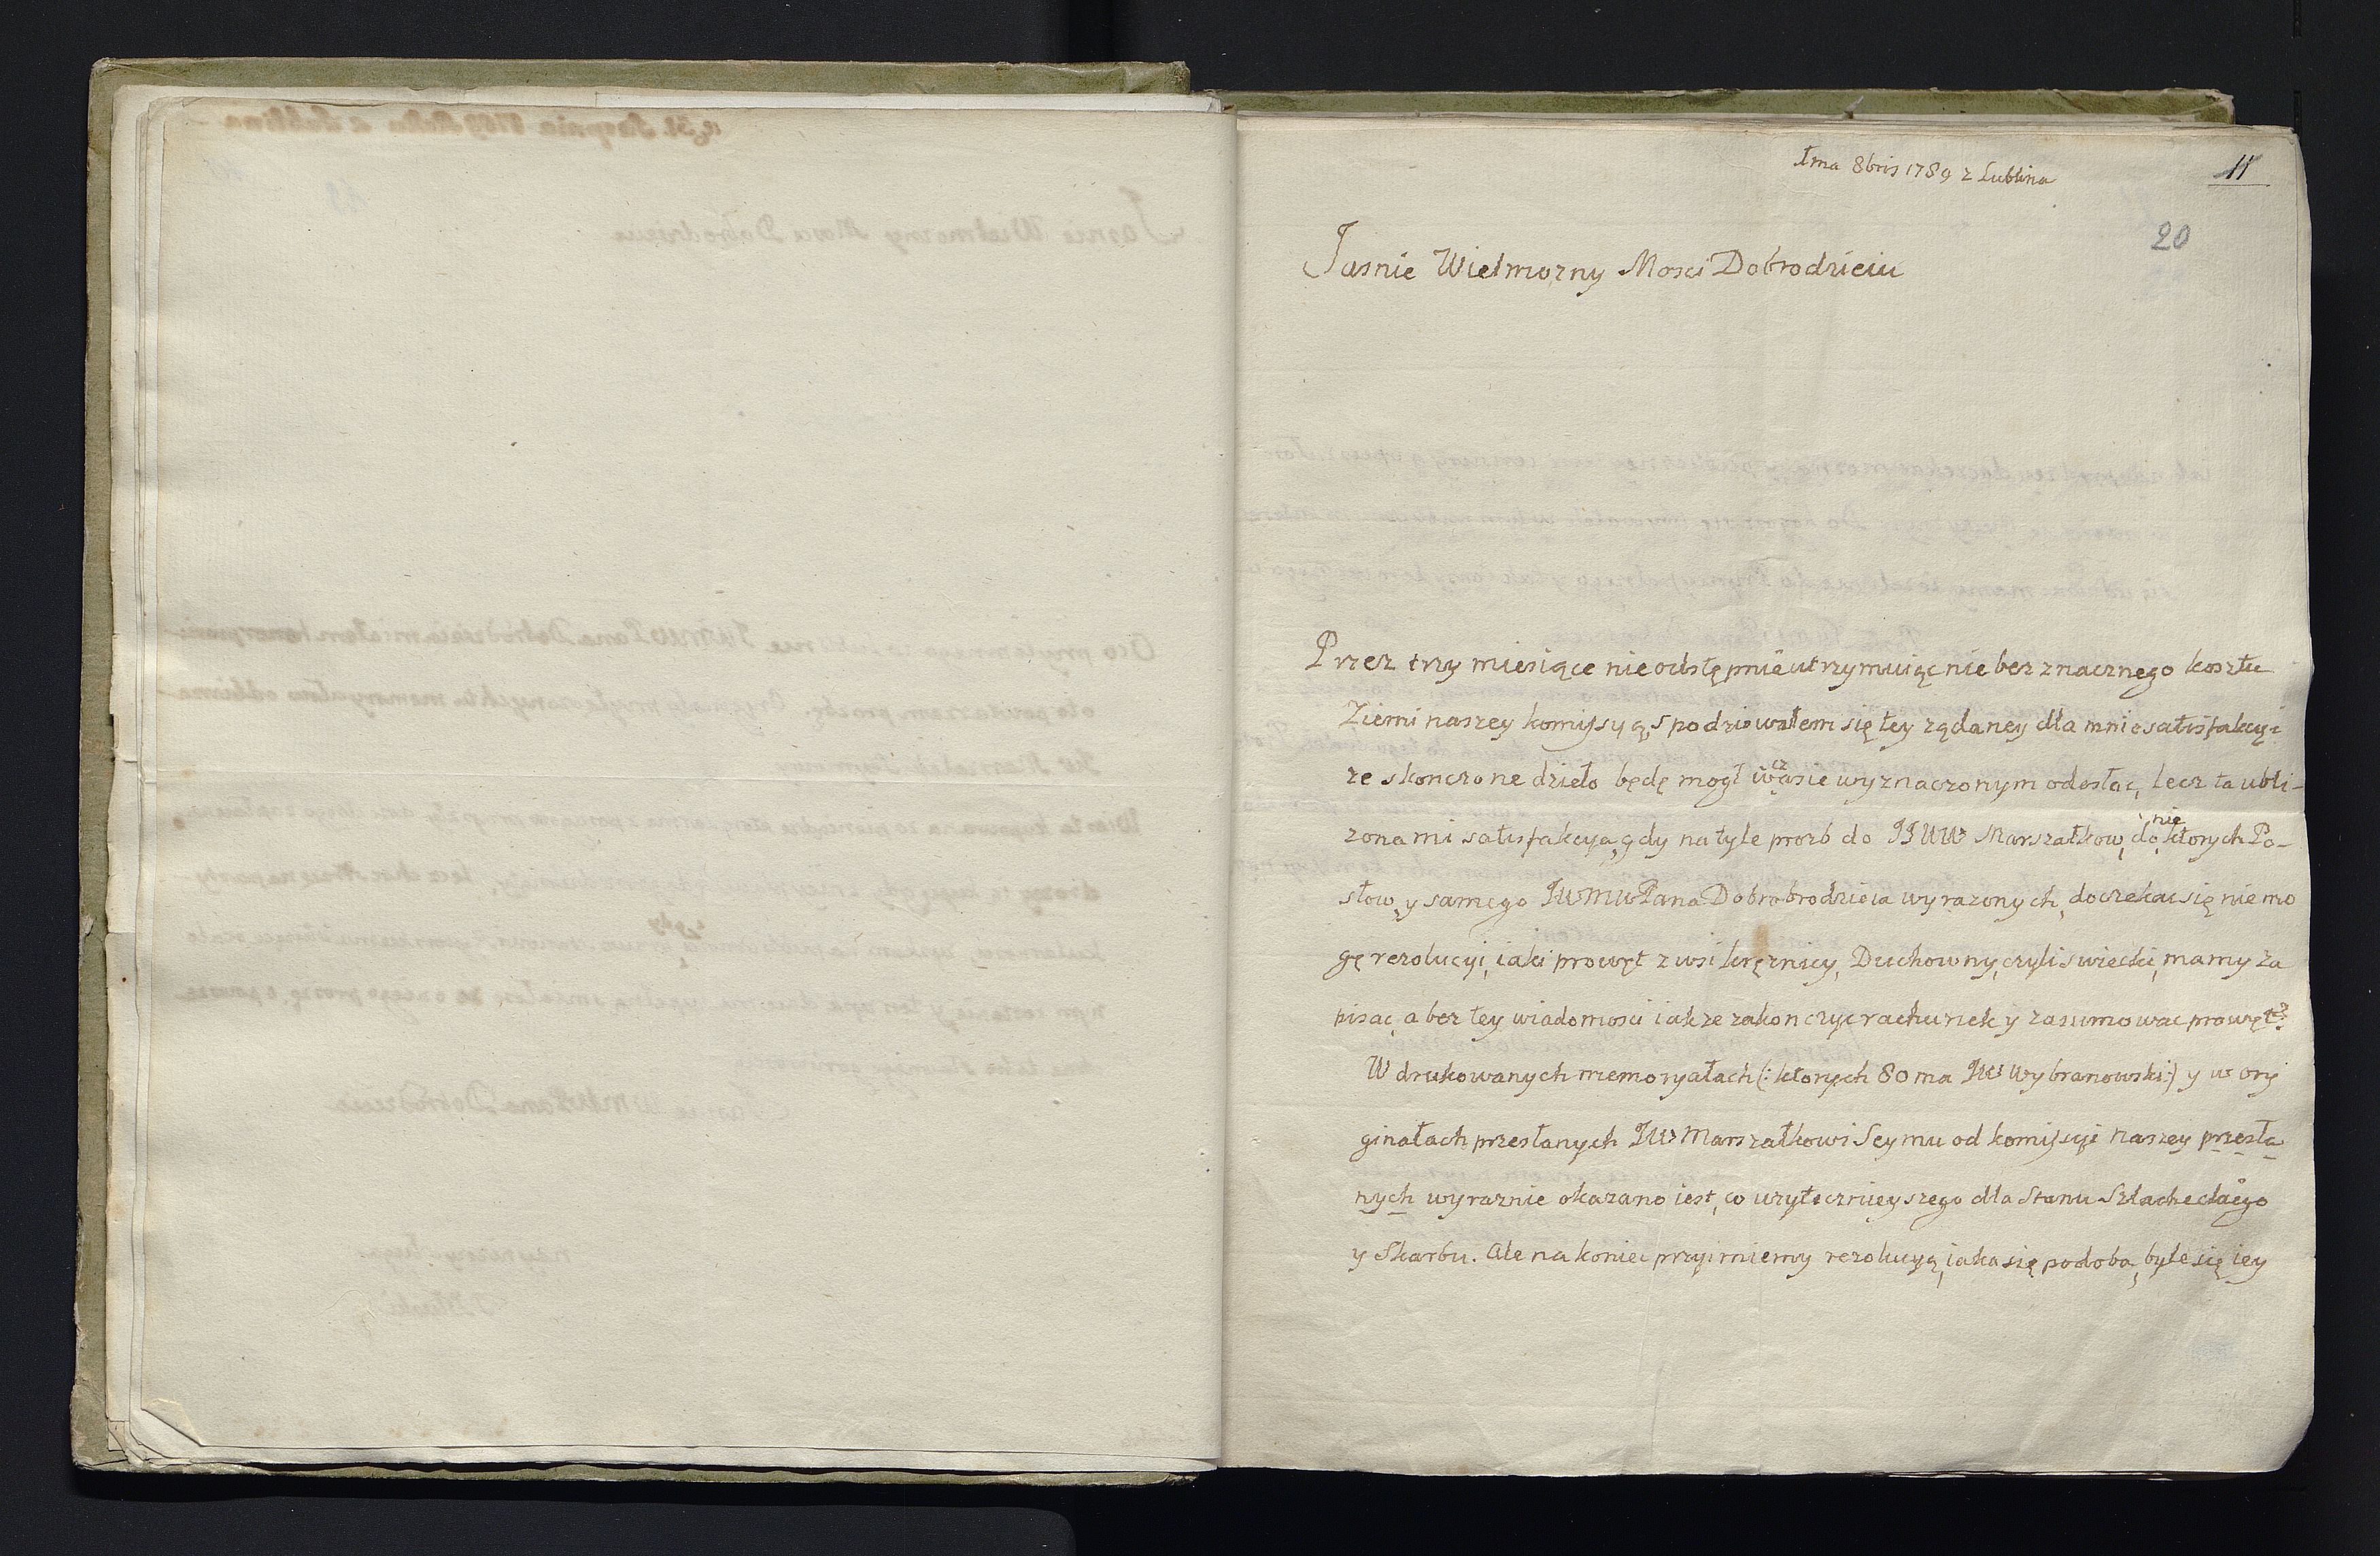 1ma 8bris 1789 z Lublina
11
20
Jasnie Wielmozny Mosci Dobrodzieiu
Przez trzy miesiące nieodstępnie utrzymuiąc nie bez znacznego kosztu
Ziemi naszey komissyą, spodziewałem się tey ządaney dla mnie satisfakcyi
ze skonczone dzieło będę mogł w czasie wyznaczonym odesłac, lecz ta ubli-
zona mi satisfakcya, gdy na tyle prozb do JJWW Marszałkow, do nie ktorych Po-
słow, y samego JWMWPana Dobrobrodzieia wyrazonych, doczekac się nie mo
gę rezolucyi, iaki prowęt z wsi kręznicy, Duchowny, czyli swiecki, mamy za
pisac, a bez tey wiadomosci iakze zakonczyc rachunek y zasumowac prowęt?
W drukowanych memoryałach (: ktorych 80 ma JW Wybranowski :) y w ory
ginałach przesłanych JW Marszałkowi Seymu od komissyi naszey przesła
nych wyraznie okazano iest, co uzytecznieyszego dla Stanu Szlacheckiego
y Skarbu. Ale na koniec przyimiemy rezolucyą, iaka się podoba, byle się iey